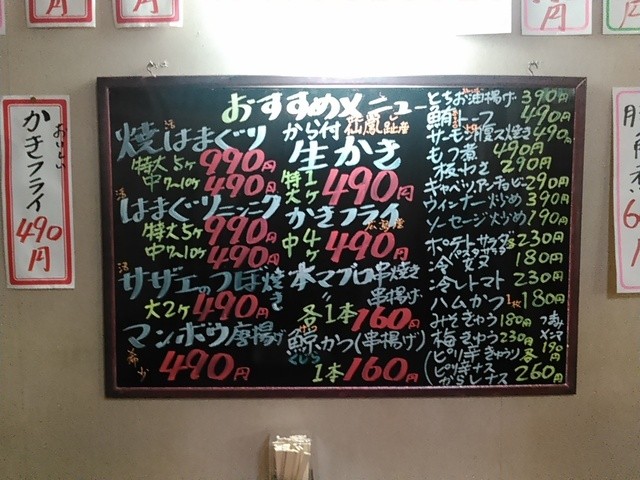 おすすめメニュー
活
焼はまぐり
特大5ケ 990円
中7~10ケ 490円
活
はまぐりニンニク
特大5ケ 990円
中7~10ケ 490円
活
サザエのつぼ焼き
大2ケ 490円
マンボウ唐揚げ
希少 490円
から付
生かき
特大1ケ 490円
かきフライ
広島産
中4ケ 490円
本マグロ串焼き
〃 串揚げ
各1本 160円
鯨かつ(串揚げ)
くじら
1本 160円
とちお油揚げ 390円
490円
490円
モツ煮 490円
板わさ 290円
キャベツアンチョビー 290円
ウィンナー炒め 390円
ソーセージ炒め 190円
ポテトサラダ
230円
冷奴 180円
冷しトマト 230円
ハムかつ 1枚 180円
みそきゅうり 180円
梅きゅう 230円
ピリ辛きゅうり
ピリ辛ナス
からしナス
各 260円
メンマ
190円
おいしい
かきフライ
490円
円
円
円
円